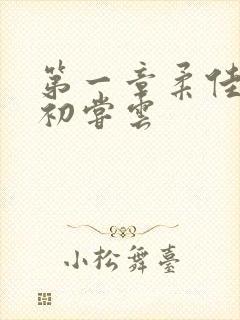 第一章柔佳
初嘗雲
小松舞臺